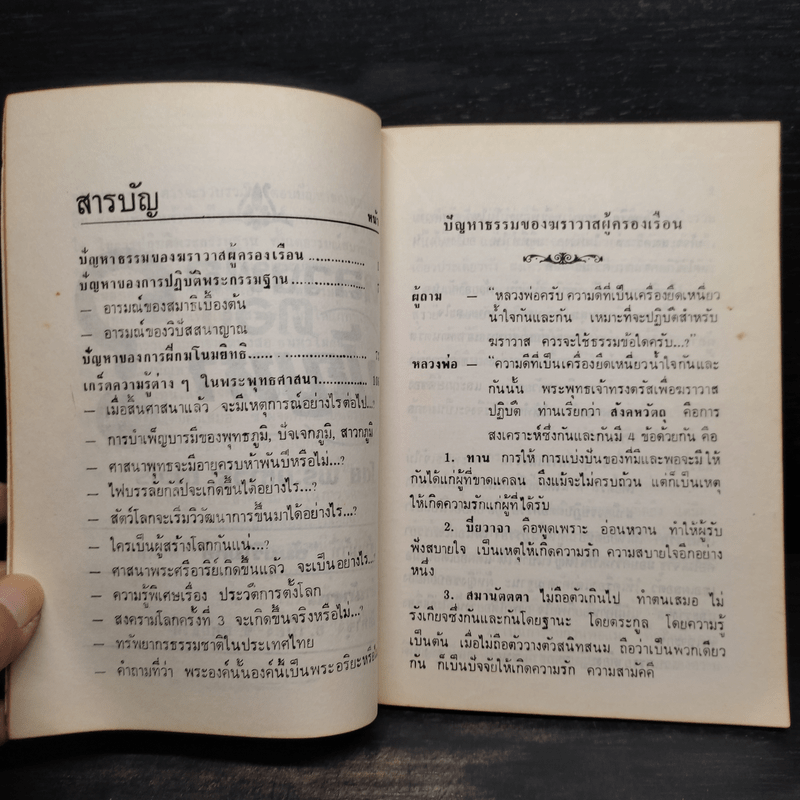 สารบัญ
หน้า
ปัญหาธรรมของฆราวาสผู้ครองเรือน ...............
ปัญหาของการปฏิบัติพระกรรมฐาน .................
— อารมณ์ของสมาธิเบื้องต้น
— อารมณ์ของวิปัสสนาญาณ
ปัญหาของการฝึกมโนมยิทธิ...... .......................
เกร็ดความรู้ต่าง ๆ ในพระพุทธศาสนา..............
— เมื่อสิ้นศาสนาแล้ว จะมีเหตุการณ์อย่างไรต่อไป...?
— การบำเพ็ญบารมีของพุทธภูมิ, ปัจเจกภูมิ, สาวกภูมิ
— ศาสนาพุทธจะมีอายุครบห้าพันปีหรือไม่...?
— ไฟบรรลัยกัลป์จะเกิดขึ้นได้อย่างไร...?
— สัตว์โลกจะเริ่มวิวัฒนาการขึ้นมาได้อย่างไร...?
— ใครเป็นผู้สร้างโลกกันแน่...?
— ศาสนาพระศรีอาริย์เกิดขึ้นแล้ว จะเป็นอย่างไร...?
— ความรู้พิเศษเรื่อง ประวัติการตั้งโลก
— สงครามโลกครั้งที่ 3 จะเกิดขึ้นจริงหรือไม่...?
— ทรัพยากรธรรมชาติในประเทศไทย
— คำถามที่ว่า พระองค์นั้นองค์นี้เป็นพระอริยะหรือ
ปัญหาธรรมของฆราวาสผู้ครองเรือน
ผู้ถาม — "หลวงพ่อครับ ความดีที่เป็นเครื่องยึดเหนี่ยว
น้ำใจกันและกัน เหมาะที่จะปฏิบัติสำหรับ
ฆราวาส ควรจะใช้ธรรมข้อใดครับ...?"
หลวงพ่อ — "ความดีที่เป็นเครื่องยึดเหนี่ยวน้ำใจกันและ
กันนั้น พระพุทธเจ้าทรงตรัสเพื่อฆราวาส
ปฏิบัติ ท่านเรียกว่า สังคหวัตถุ คือการ
สงเคราะห์ซึ่งกันและกันมี 4 ข้อด้วยกัน คือ
1. ทาน การให้ การแบ่งปันของที่มีและพอจะมีให้
กันได้แก่ผู้ที่ขาดแคลน ถึงแม้จะไม่ครบถ้วน แต่ก็เป็นเหตุ
ให้เกิดความรักแก่ผู้ที่ได้รับ
2. ปิยวาจา คือพูดเพราะ อ่อนหวาน ทำให้ผู้รับ
ฟังสบายใจ เป็นเหตุให้เกิดความรัก ความสบายใจอีกอย่าง
หนึ่ง
3. สมานัตตตา ไม่ถือตัวเกินไป ทำตนเสมอ ไม่
รังเกียจซึ่งกันและกันโดยฐานะ โดยตระกูล โดยความรู้
เป็นต้น เมื่อไม่ถือตัววางตัวสนิทสนม ถือว่าเป็นพวกเดียว
กัน ก็เป็นปัจจัยให้เกิดความรัก ความสามัคคี